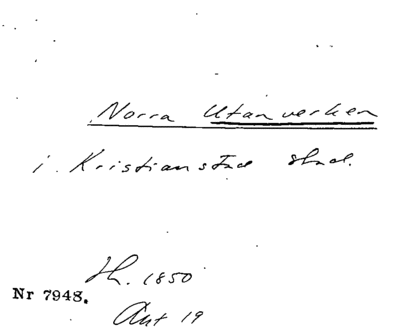 Norra Utanverken
i Kristianstad stad.
Th. 1850
Nr 7948.
Ant 19